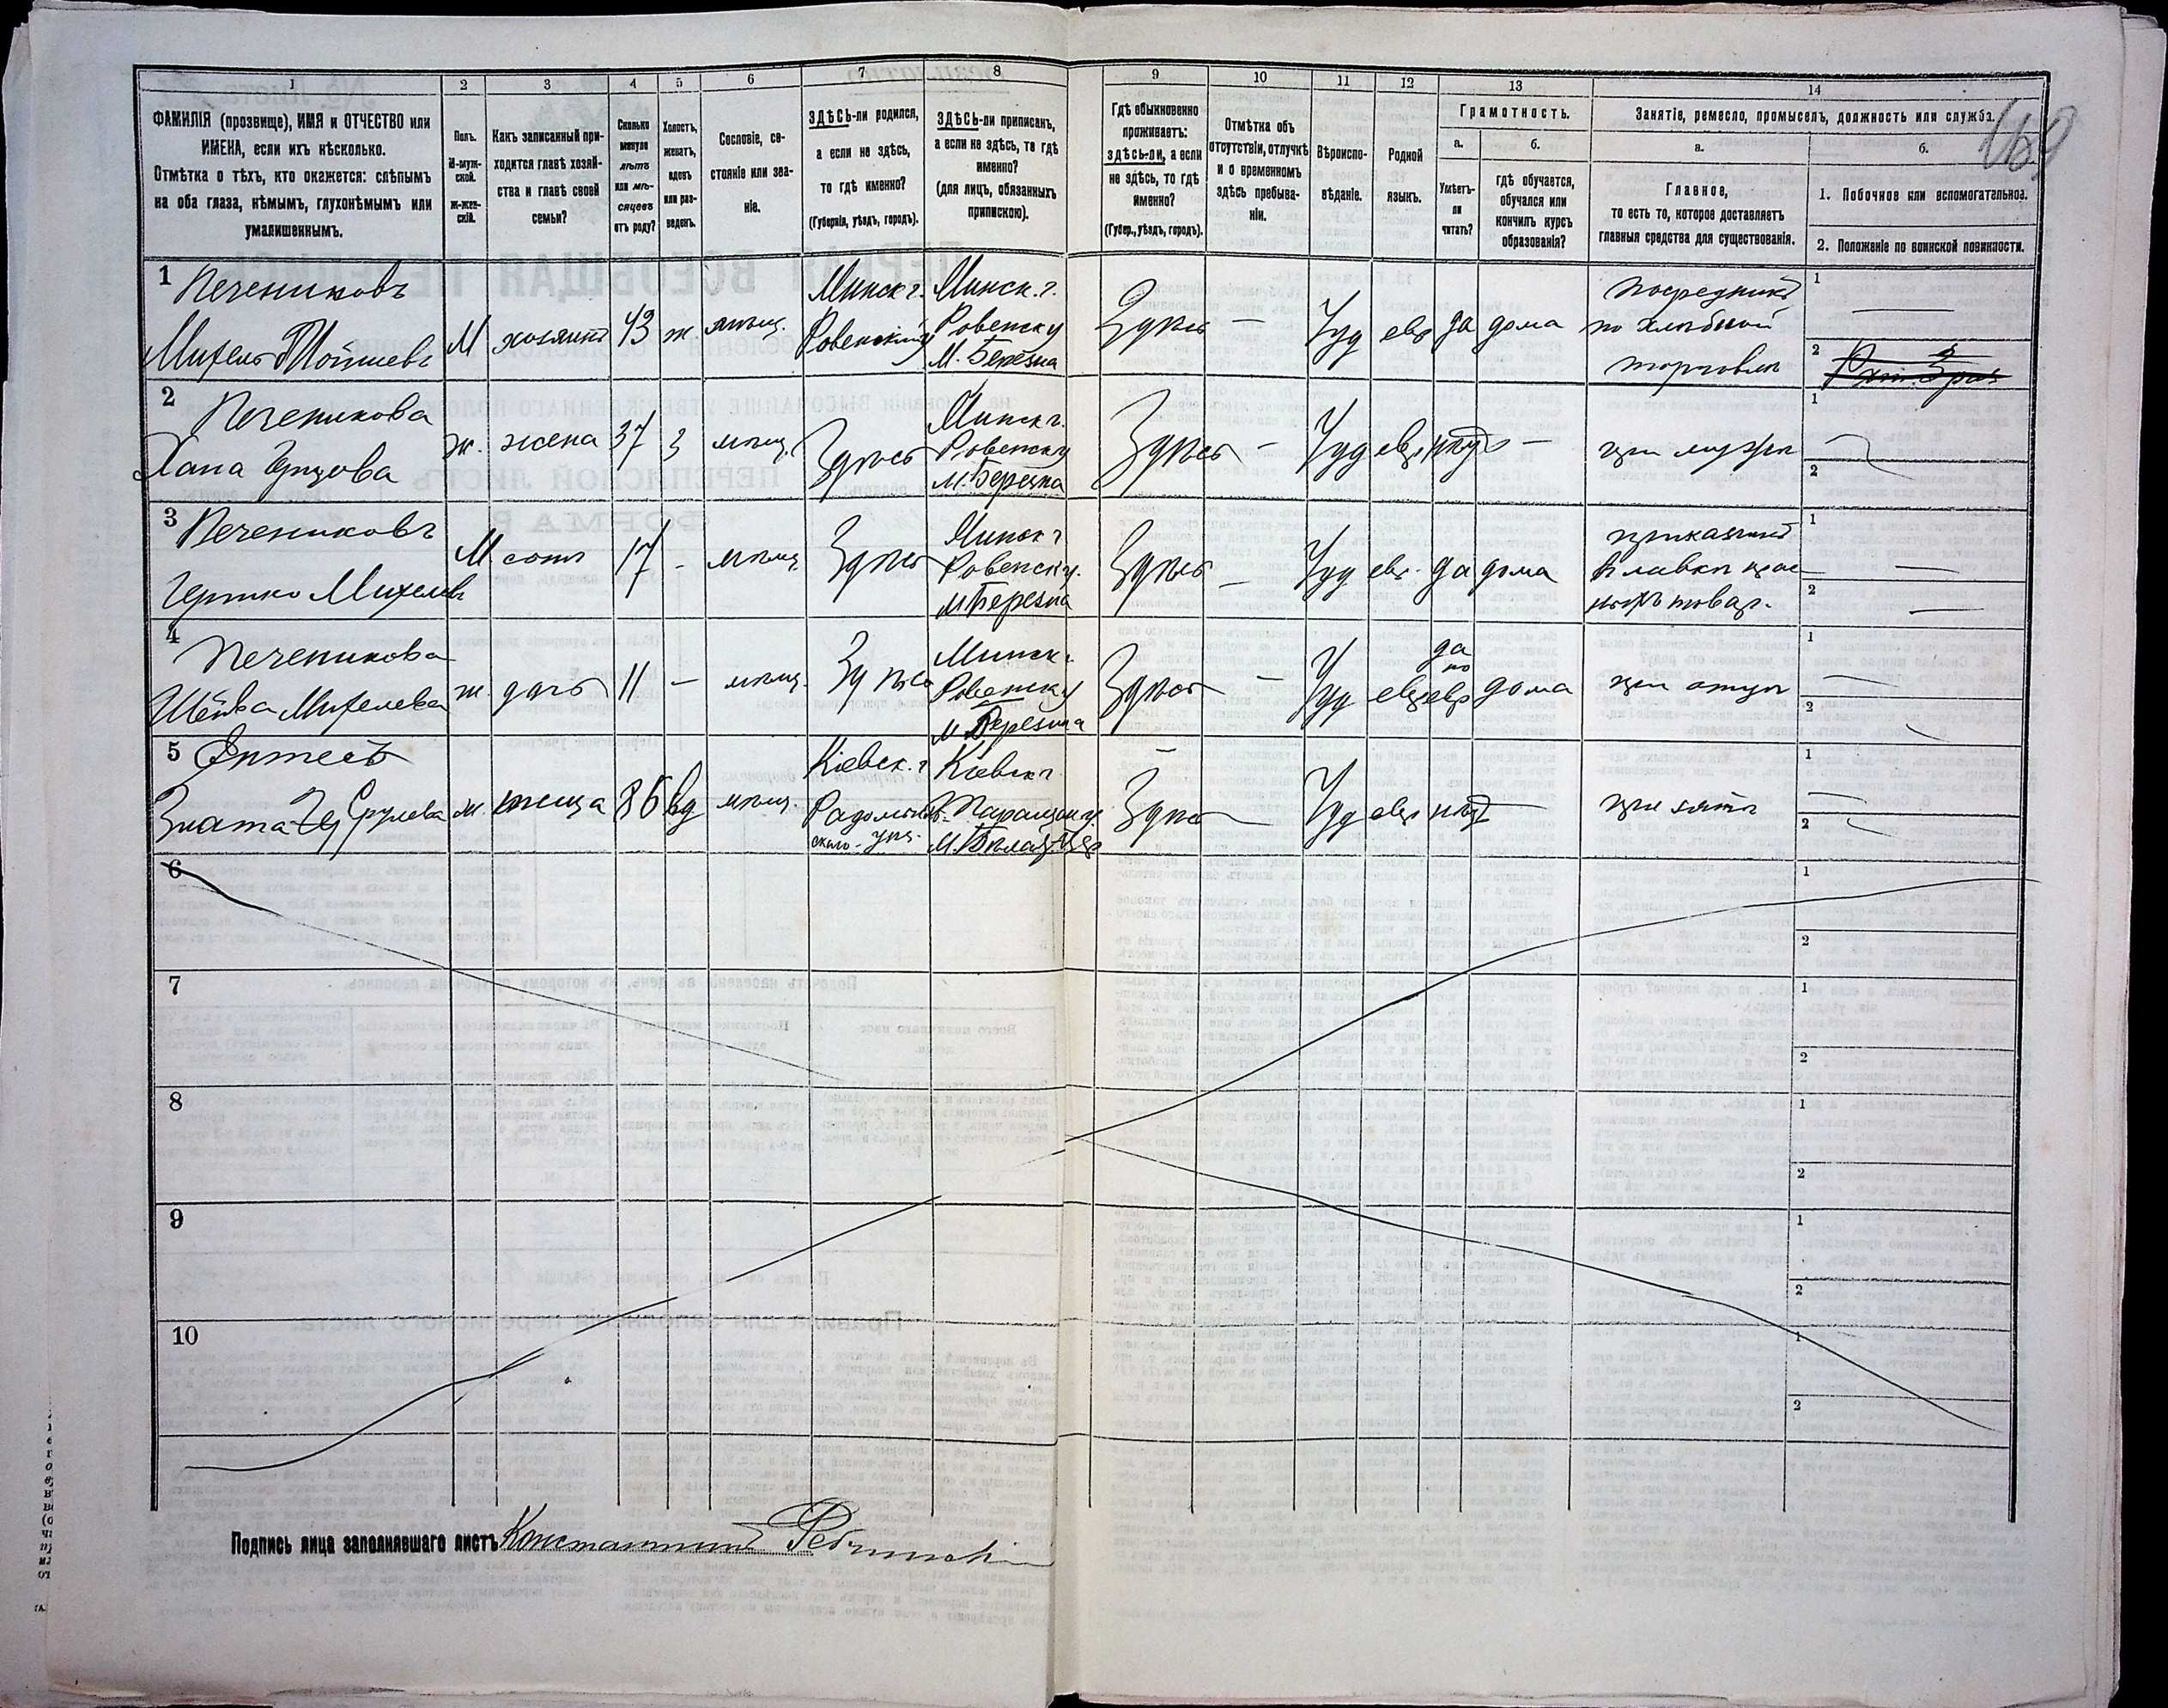 1 2 3 4 5 6 7 8 9 10 11 12 13 14
ФАМИЛІЯ (прозвище), ИМЯ и ОТЧЕСТВО или
ИМЕНА, если ихъ нѣсколько.
Отмѣтка о тѣхъ, кто окажется: слѣпымъ
на оба глаза, нѣмымъ, глухонѣмымъ или
умалишеннымъ.
Полъ.
М-муж-
ской.
ж-жен-
скій.
Какъ записанный при-
ходится главѣ хозяй-
ства и главѣ своей
семьи?
Сколько
минуло
лѣтъ
или мѣ-
сяцевъ
отъ роду?
Холостъ,
женатъ,
вдовъ
или раз-
веденъ.
Сословіе, со-
стояніе или зва-
ніе.
ЗДѢСЬ-ли родился,
а если не здѣсь,
то гдѣ именно?
(Губернія, уѣздъ, городъ).
ЗДѢСЬ-ли приписанъ,
а если не здѣсь, то гдѣ
именно?
(для лицъ, обязанныхъ
припискою).
Гдѣ обыкновенно
проживаетъ:
здѣсь-ли, а если
не здѣсь, то гдѣ
именно?
(Губер., уѣздъ, городъ).
Отмѣтка объ
отсутствіи, отлучкѣ
и о временномъ
здѣсь пребыва-
ніи.
Вѣроиспо-
вѣданіе.
Родной
языкъ.
Грамотность.
а.
Умѣетъ-
ли
читать?
б.
гдѣ обучается,
обучался или
кончилъ курсъ
образованія?
Занятіе, ремесло, промыселъ, должность или служба.
а.
Главное,
то есть то, которое доставляетъ
главныя средства для существованія.
б.
1. Побочное или вспомогательное.
2. Положеніе по воинской повинности.
169
1 Печениковъ
Михель Мойшевъ
М хозяинъ 43 ж мѣщ.
Минск г.
Ровенскій у
Минск. г.
Ровенск у
М. Березна
Здѣсь — Іуд евр да дома
посредникъ
по хлѣбной
торговлѣ
1 —
2
2 Печеникова
Хана
ж. жена 37 з мѣщ. Здѣсь
Минск г.
Ровенск у
М. Березна
Здѣсь — Іуд евр нѣтъ —
при мужѣ
1
2
3 Печениковъ
Гершко Михелевъ
М сынъ 17 - мѣщ. Здѣсь
Минск г
Ровенск у.
М Березна
Здѣсь — Іуд евр. да дома
приказчикъ
в лавкѣ крас
ныхъ товар.
1 —
2 —
4 Печеникова
Шейва Михелева
ж. дочь 11 — мѣщ. Здѣсь
Минск г
Ровенск у
М Березна
Здѣсь — Іуд евр да
по
евр дома
при отцѣ
1 —
2
5
Злата Срулева
ж. теща 86 вд мѣщ.
Кіевск. г
Радомысль
скаго уѣз.
Кіевск г
М. Бѣлая Цер
Здѣсь — Іуд евр нѣтъ —
при зятѣ
1 —
2
6 1
2
7 1
2
8 1
2
9 1
2
10 1
2
Подпись лица заполнявшаго листъ Константинъ